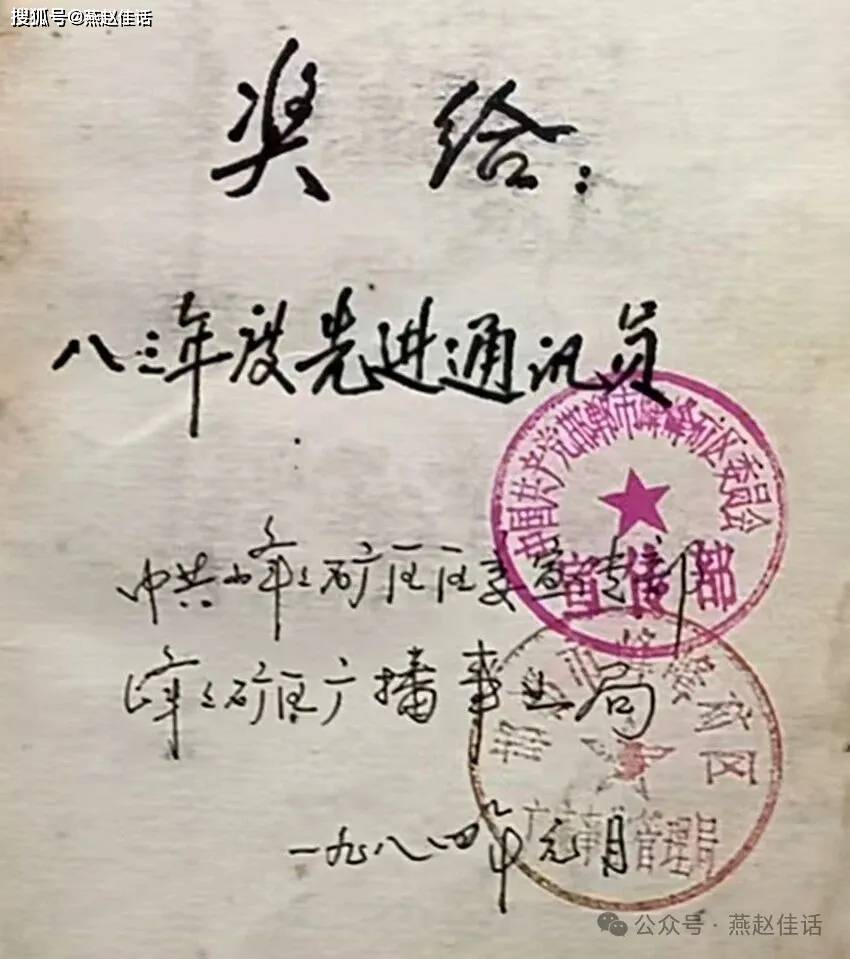 搜狐号@燕赵佳话
奖给：
八三年度先进通讯员
中共峰々矿区区委宣传部
峰々矿区广播事业局
一九八四年元月
中国共产党邯郸市峰峰矿区委员会
宣传部
邯郸市峰峰矿区
广播事业管理局
公众号·燕赵佳话